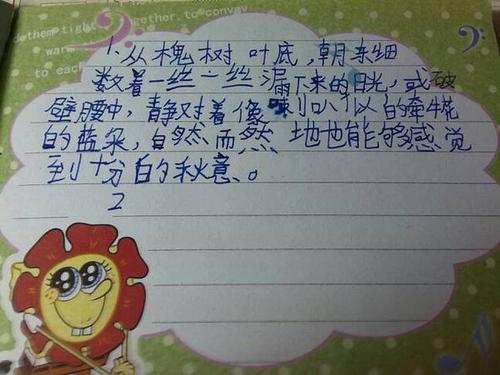 dethem tight together, to convey
warm
to each
1.从槐树叶底,朝东细
数着一丝一丝漏下来的日光,或破
壁腰中,静对着像喇叭似的牵牛花
的蓝朵,自然而然地也能够感觉
到十分的秋意。
2